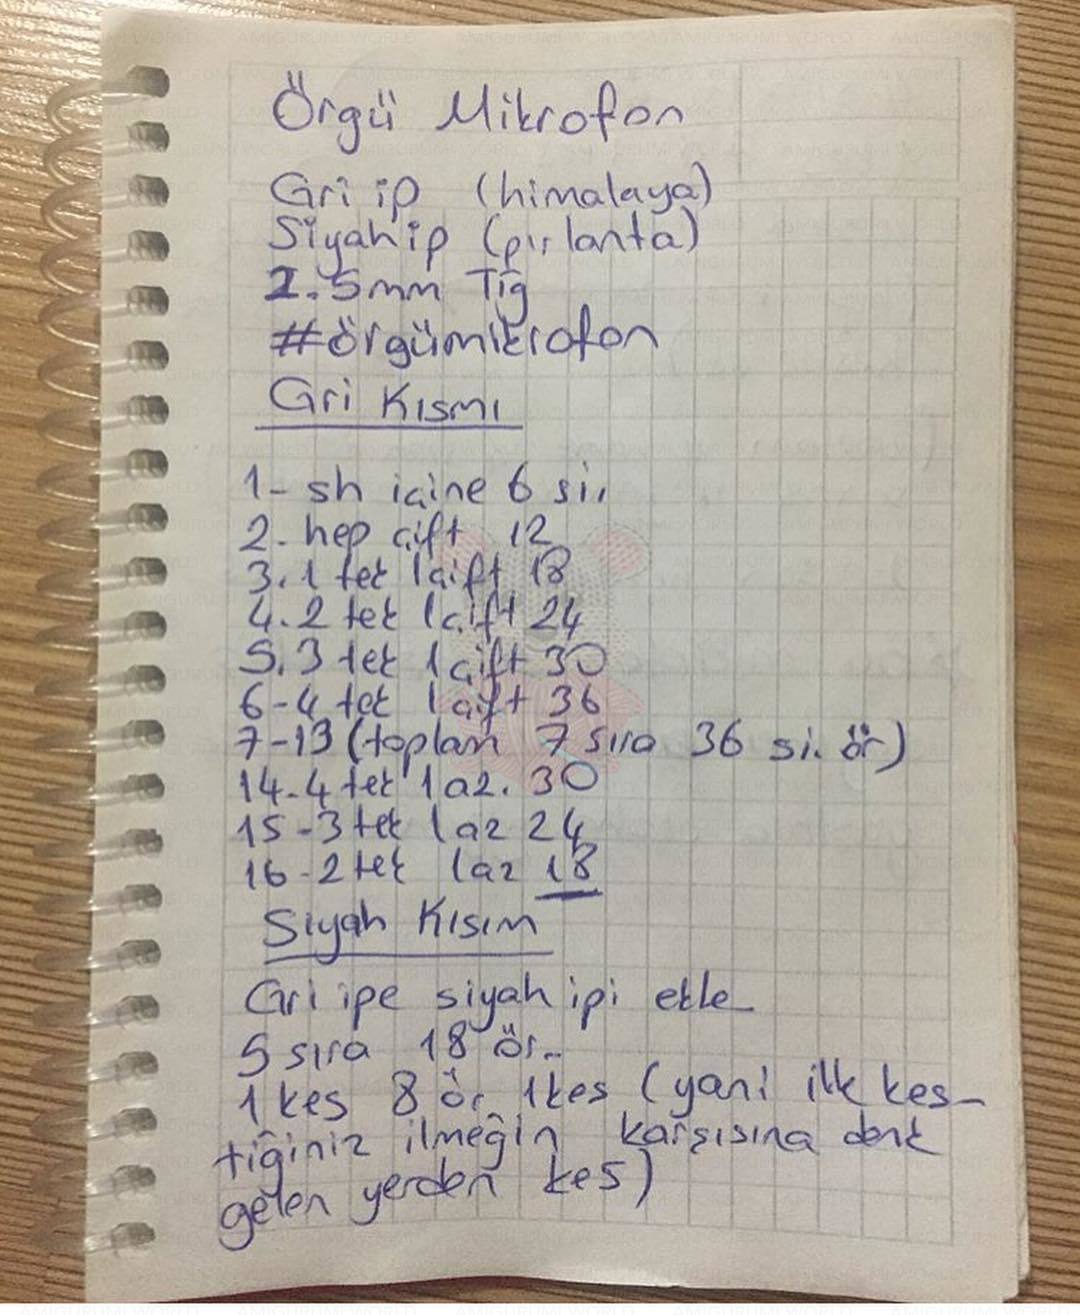 Örgü Mikrofon
Gri ip (himalaya)
Siyah ip (pırlanta)
2.5mm Tığ
#örgümikrofon
Gri Kısmı
1- sh içine 6 si.
2. hep çift 12
3. 1 tek 1 çift 18
4. 2 tek 1 çift 24
5. 3 tek 1 çift 30
6-4 tek 1 çift 36
7-13 (toplam 7 sıra 36 si. ör)
14-4 tek 1 az. 30
15-3 tek 1 az 24
16-2 tek 1 az 18
Siyah Kısım
Gri ipe siyah ipi ekle
5 sıra 18 ör.
1 kes 8 ör 1 kes (yani ilk kes-
tiğiniz ilmeğin karşısına denk
gelen yerden kes)